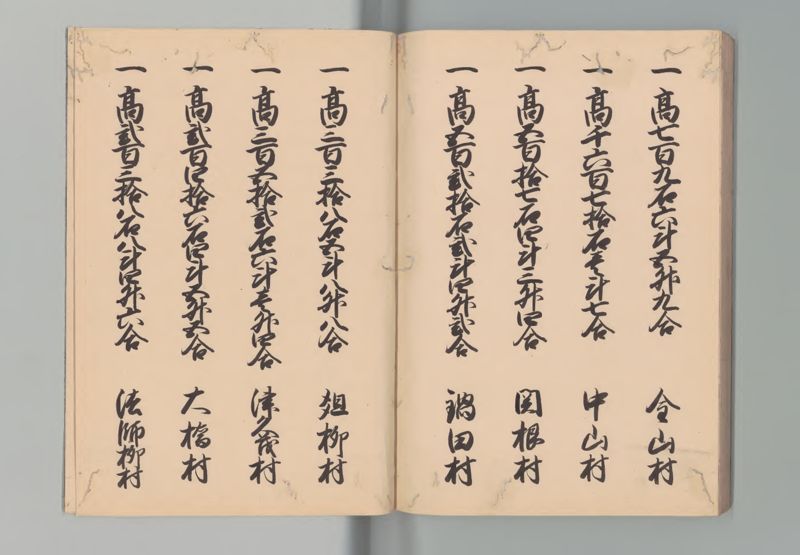 一 高七百九石六斗五升九合 今山村
一 高千六百七拾石壱斗七合 中山村
一 高五百拾七石四斗三升四合 関根村
一 高五百弐拾石弐斗四升弐合 鍋田村
一 高三百三拾八石五斗八升八合 俎柳村
一 高三百五拾弐石六斗壱升四合 津久茂村
一 高弐百四拾六石四斗五升五合 大橋村
一 高弐百三拾八石八斗四升六合 法師柳村